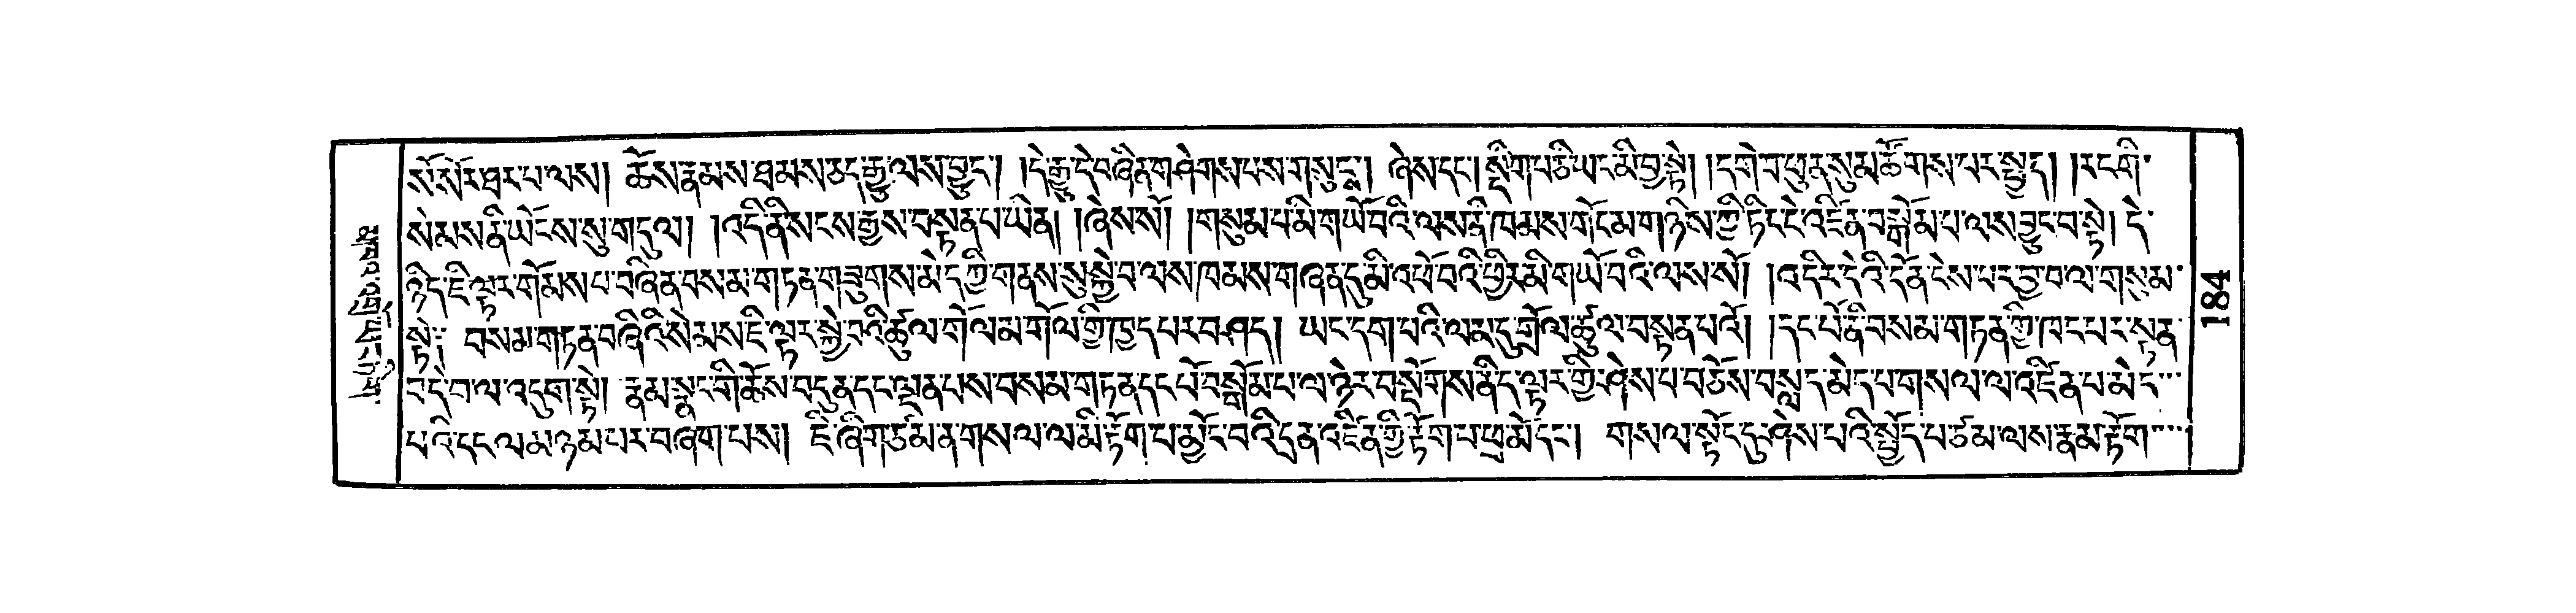 སོ་སོར་ཐར་པ་ལས། ཆོས་རྣམས་ཐམས་ཅད་རྒྱུ་ལས་བྱུང་། །དེ་རྒྱུ་དེ་བཞིན་གཤེགས་པས་གསུངས། ཞེས་དང་། སྡིག་པ་ཅི་ཡང་མི་བྱ་སྟེ། །དགེ་བ་ཕུན་སུམ་ཚོགས་པར་སྤྱད། །རང་གི་
སེམས་ནི་ཡོངས་སུ་གདུལ། །འདི་ནི་སངས་རྒྱས་བསྟན་པ་ཡིན། །ཞེས་སོ། །གསུམ་པ་མི་གཡོ་བའི་ལས་ནི་ཁམས་གོང་མ་གཉིས་ཀྱི་ཏིང་ངེ་འཛིན་བསྒོམ་པ་ལས་བྱུང་བ་སྟེ། དེ་
ཉིད་ཇི་ལྟར་གོམས་པ་བཞིན་བསམ་གཏན་གཟུགས་མེད་ཀྱི་གནས་སུ་སྐྱེ་བ་ལས་ཁམས་གཞན་དུ་མི་འཕོ་བའི་ཕྱིར་མི་གཡོ་བའི་ལས་སོ། །འདིར་དེའི་དོན་ངེས་པར་བྱ་བ་ལ་གསུམ་
སྟེ༔ བསམ་གཏན་བཞིའི་སེམས་ཇི་ལྟར་སྐྱེ་བའི་ཚུལ་གོལ་མ་གོལ་གྱི་ཁྱད་པར་བཤད། ཡང་དག་པའི་ལམ་དུ་གྲོལ་ཚུལ་བསྟན་པའོ། །དང་པོ་ནི་བསམ་གཏན་ཀྱི་ཁང་པར་སྟན་
བདེ་བ་ལ་འདུག་སྟེ། རྣམ་སྣང་གི་ཆོས་བདུན་དང་ལྡན་པས་བསམ་གཏན་དང་པོ་བསྒོམ་པ་ལ་ཉེར་བསྡོགས་ནི་ད་ལྟར་གྱི་ཤེས་པ་བཅོས་བསླད་མེད་པ་གསལ་ལ་འཛིན་པ་མེད་
པའི་དང་ལ་མཉམ་པར་བཞག་པས། ཇི་ཞིག་ཙམ་ན་གསལ་ལ་མི་རྟོག་པ་མྱོང་བའི་དྲན་འཛིན་གྱི་རྟོག་པ་ཕྲ་མོ་དང་། གསལ་སྟོང་དུ་ཤེས་པའི་སྤྱོད་པ་ཙམ་ལས་རྣམ་རྟོག་
481